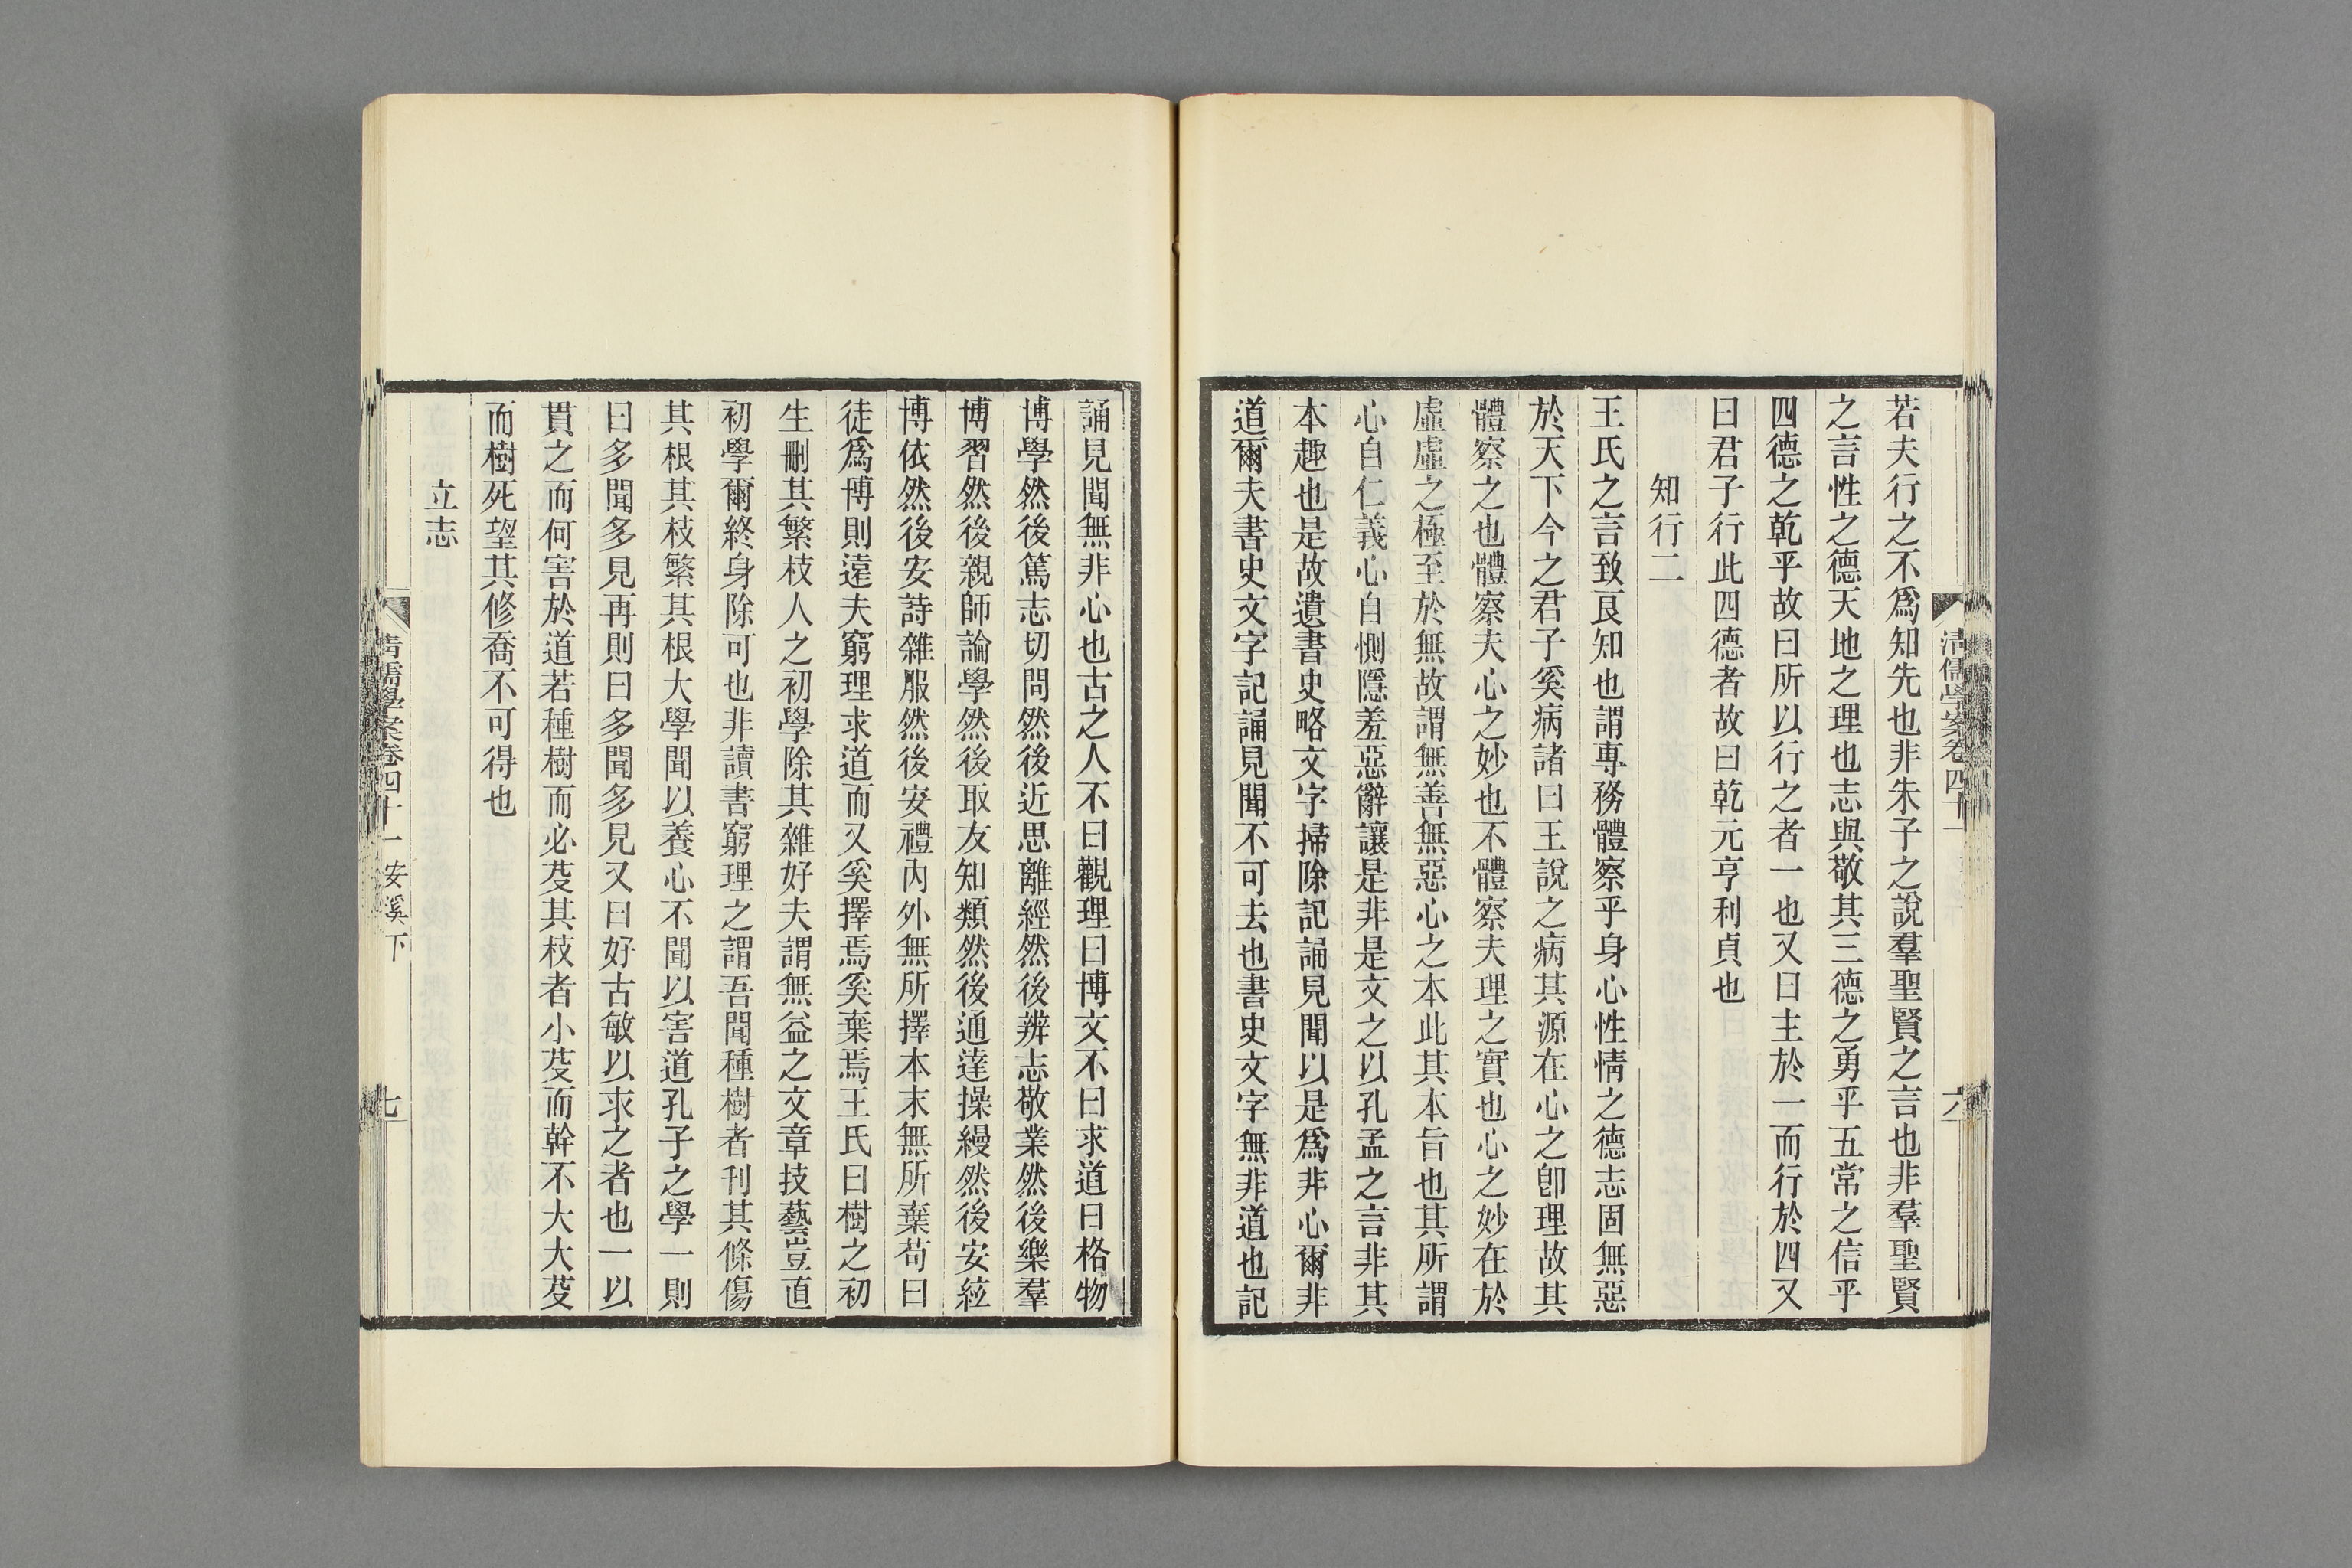 清儒學案卷四十一
六
若夫行之不爲知先也非朱子之說羣聖賢之言也非羣聖賢
之言性之德天地之理也志與敬其三德之勇乎五常之信乎
四德之乾乎故曰所以行之者一也又曰主於一而行於四又
曰君子行此四德者故曰乾元亨利貞也
知行二
王氏之言致良知也謂專務體察乎身心性情之德志固無惡
於天下今之君子奚病諸曰王說之病其源在心之卽理故其
體察之也體察夫心之妙也不體察夫理之實也心之妙在於
虛虛之極至於無故謂無善無惡心之本此其本旨也其所謂
心自仁義心自惻隱羞惡辭讓是非是文之以孔孟之言非其
本趣也是故遺書史略文字掃除記誦見聞以是爲非心爾非
道爾夫書史文字記誦見聞不可去也書史文字無非道也記
誦見聞無非心也古之人不曰觀理曰博文不曰求道曰格物
博學然後篤志切問然後近思離經然後辨志敬業然後樂羣
博習然後親師論學然後取友知類然後通達操縵然後安絃
博依然後安詩雜服然後安禮內外無所擇本末無所棄苟曰
徒爲博則遠夫窮理求道而又奚擇焉奚棄焉王氏曰樹之初
生刪其繁枝人之初學除其雜好夫謂無益之文章技藝豈直
初學爾終身除可也非讀書窮理之謂吾聞種樹者刊其條傷
其根其枝繁其根大學聞以養心不聞以害道孔子之學一則
曰多聞多見再則曰多聞多見又曰好古敏以求之者也一以
貫之而何害於道若種樹而必芟其枝者小芟而幹不大大芟
而樹死望其修喬不可得也
立志
清儒學案卷四十一 安溪下
七